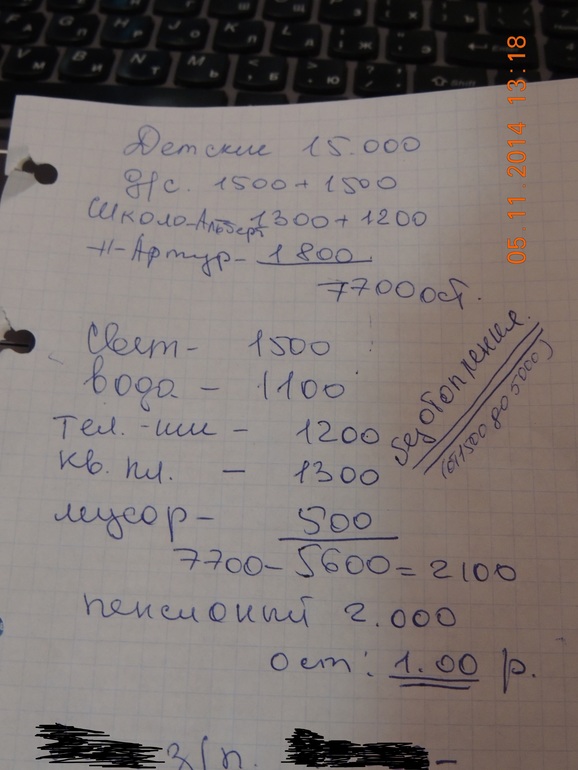 Детские 15.000
д/с. 1500 + 1500
Школо-Альберт 1300 + 1200
-"- Артур - 1800
7700 ост.
Свет - 1500
вода - 1100
тел. - 1200
кв. пл. - 1300
мусор - 500
7700 - 5600 = 2100
пенсионный 2.000
ост: 1.00 р.
з/п. -
без отопления.
(от 1500 до 5000)
05.11.2014 13:18